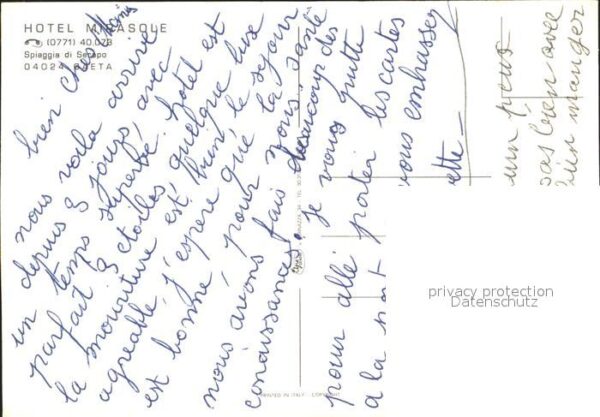 HOTEL MIRASOLE
(0771) 40.078
Spiaggia di Serapo
04024 GAETA
bien chers Amis
nous voila arrivé
depuis 3 jours, avec
un temps superbe. hotel est
parfait 3 etoiles, quelque luxe
la nourriture est bien le sejour
agreable, j'espere que la santé
est bonne, pour vous.
nous avons fais beaucoup des
conaissances. Je vous quitte
pour allé poster les cartes
a la
vous embrasse
ette
un peu
pas bien avec
bien manger
PRINTED IN ITALY
COPYRIGHT
privacy protection
Datenschutz